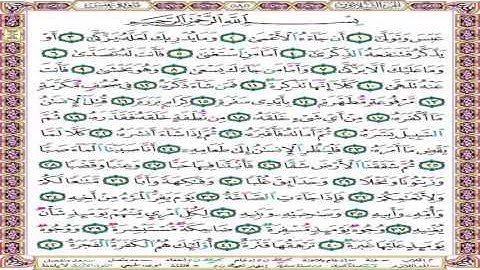 الجزء الثلاثون ٥٨٥ سورة عبس
بِسْمِ اللَّهِ الرَّحْمَٰنِ الرَّحِيمِ
عَبَسَ وَتَوَلَّىٰ ١ أَن جَاءَهُ الْأَعْمَىٰ ٢ وَمَا يُدْرِيكَ لَعَلَّهُ يَزَّكَّىٰ ٣ أَوْ
يَذَّكَّرُ فَتَنفَعَهُ الذِّكْرَىٰ ٤ أَمَّا مَنِ اسْتَغْنَىٰ ٥ فَأَنتَ لَهُ تَصَدَّىٰ ٦
وَمَا عَلَيْكَ أَلَّا يَزَّكَّىٰ ٧ وَأَمَّا مَن جَاءَكَ يَسْعَىٰ ٨ وَهُوَ يَخْشَىٰ ٩ فَأَنتَ
عَنْهُ تَلَهَّىٰ ١٠ كَلَّا إِنَّهَا تَذْكِرَةٌ ١١ فَمَن شَاءَ ذَكَرَهُ ١٢ فِي صُحُفٍ مُّكَرَّمَةٍ
١٣ مَّرْفُوعَةٍ مُّطَهَّرَةٍ ١٤ بِأَيْدِي سَفَرَةٍ ١٥ كِرَامٍ بَرَرَةٍ ١٦ قُتِلَ الْإِنسَٰنُ
مَا أَكْفَرَهُ ١٧ مِنْ أَيِّ شَيْءٍ خَلَقَهُ ١٨ مِن نُّطْفَةٍ خَلَقَهُ فَقَدَّرَهُ ١٩ ثُمَّ
السَّبِيلَ يَسَّرَهُ ٢٠ ثُمَّ أَمَاتَهُ فَأَقْبَرَهُ ٢١ ثُمَّ إِذَا شَاءَ أَنشَرَهُ ٢٢ كَلَّا لَمَّا
يَقْضِ مَا أَمَرَهُ ٢٣ فَلْيَنظُرِ الْإِنسَٰنُ إِلَىٰ طَعَامِهِ ٢٤ أَنَّا صَبَبْنَا الْمَاءَ صَبًّا
٢٥ ثُمَّ شَقَقْنَا الْأَرْضَ شَقًّا ٢٦ فَأَنبَتْنَا فِيهَا حَبًّا ٢٧ وَعِنَبًا وَقَضْبًا ٢٨
وَزَيْتُونًا وَنَخْلًا ٢٩ وَحَدَائِقَ غُلْبًا ٣٠ وَفَٰكِهَةً وَأَبًّا ٣١ مَّتَٰعًا لَّكُمْ
وَلِأَنْعَٰمِكُمْ ٣٢ فَإِذَا جَاءَتِ الصَّاخَّةُ ٣٣ يَوْمَ يَفِرُّ الْمَرْءُ مِنْ أَخِيهِ ٣٤
وَأُمِّهِ وَأَبِيهِ ٣٥ وَصَٰحِبَتِهِ وَبَنِيهِ ٣٦ لِكُلِّ امْرِئٍ مِّنْهُمْ يَوْمَئِذٍ شَأْنٌ
يُغْنِيهِ ٣٧ وُجُوهٌ يَوْمَئِذٍ مُّسْفِرَةٌ ٣٨ ضَاحِكَةٌ مُّسْتَبْشِرَةٌ ٣٩ وَوُجُوهٌ
يَوْمَئِذٍ عَلَيْهَا غَبَرَةٌ ٤٠ تَرْهَقُهَا قَتَرَةٌ ٤١ أُولَٰئِكَ هُمُ الْكَفَرَةُ الْفَجَرَةُ ٤٢